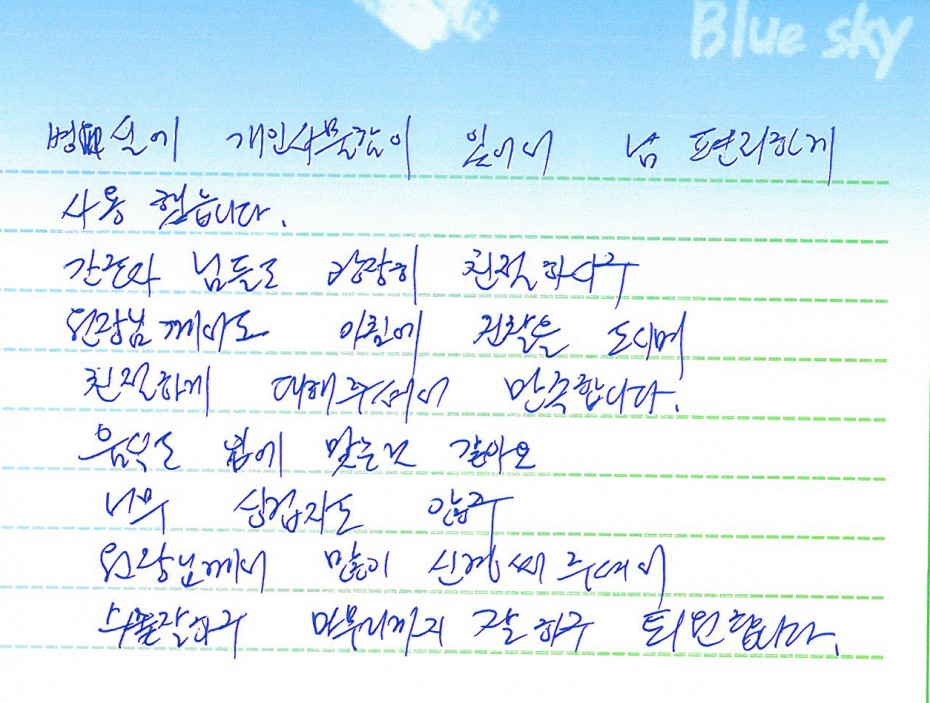 Blue sky
병실에 개인사물함이 있어서 넘 편리하게
사용 했습니다.
간호사 님들도 굉장히 친절하시구
원장님께서도 아침에 진찰을 도시며
친절하게 대해주셔서 만족합니다.
음식도 입에 맞는것 같아요
너무 싱겁지도 않구
원장님께서 많이 신경써주셔서
수술잘하구 마무리까지 잘하구 퇴원합니다.